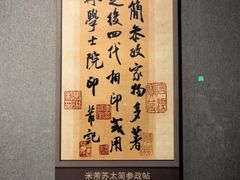 簡参政家物多著
之後四代相印或用
學士院印 芾記
米芾苏太简参政帖